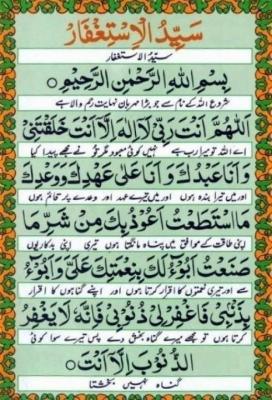 سَيِّدُ الْاِسْتِغْفَارْ
سیّدُ الاستغفار
بِسْمِ اللهِ الرَّحْمٰنِ الرَّحِيْمِ
شروع اللہ کے نام سے جو بڑا مہربان نہایت رحم والا ہے
اَللّٰهُمَّ اَنْتَ رَبِّيْ لَآ اِلٰهَ اِلَّا اَنْتَ خَلَقْتَنِيْ
اے اللہ تو میرا رب ہے نہیں کوئی معبود مگر تو نے مجھے پیدا کیا
وَاَنَا عَبْدُكَ وَاَنَا عَلٰى عَهْدِكَ وَوَعْدِكَ
اور میں تیرا بندہ ہوں اور میں تیرے عہد اور وعدے پر قائم ہوں
مَا اسْتَطَعْتُ اَعُوْذُ بِكَ مِنْ شَرِّ مَا
اپنی طاقت کے موافق میں پناہ مانگتا ہوں تیری اپنی بدکاریوں
صَنَعْتُ اَبُوْٓءُ لَكَ بِنِعْمَتِكَ عَلَيَّ وَاَبُوْٓءُ
اور تیری نعمتوں کا اقرار کرتا ہوں اور اپنے گناہوں کا اقرار
بِذَنْبِيْ فَاغْفِرْ لِيْ ذُنُوْبِيْ فَاِنَّهٗ لَا يَغْفِرُ
کرتا ہوں تو مجھے میرے گناہ بخش دے پس تیرے سوا کوئی
الذُّنُوْبَ اِلَّا اَنْتَ
گناہ نہیں بخشتا